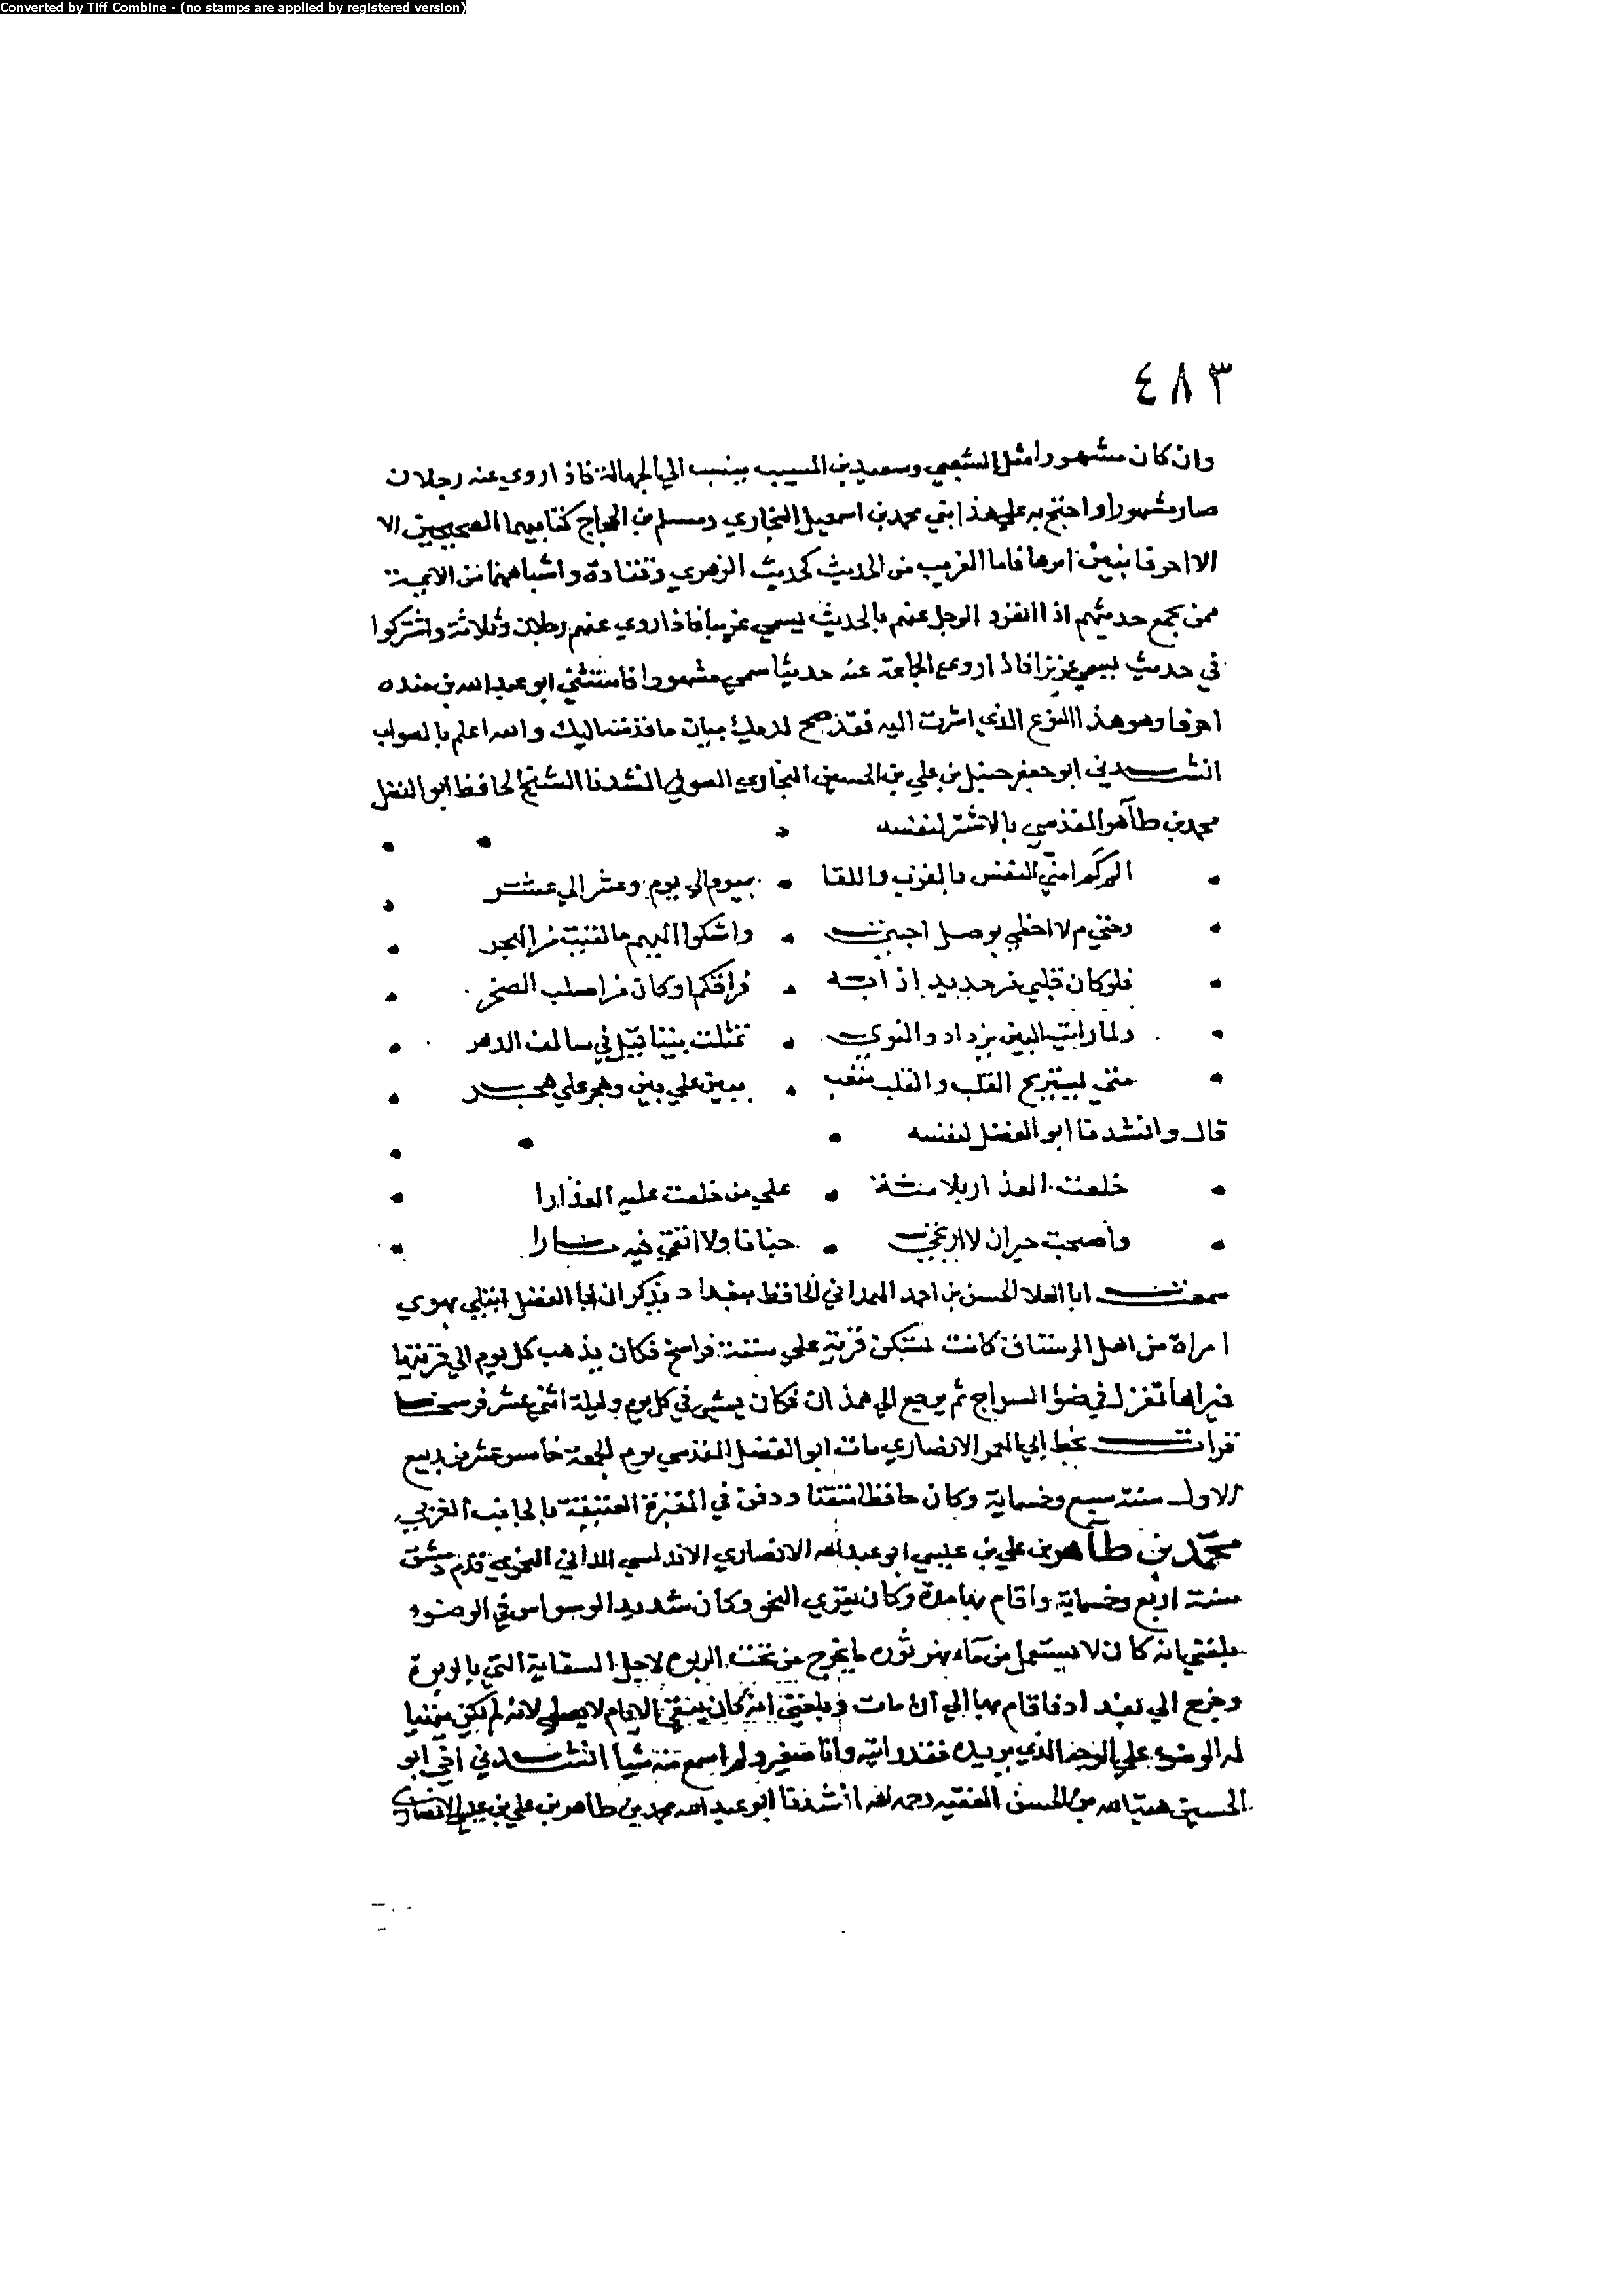 Converted by Tiff Combine - (no stamps are applied by registered version)
٤٨٣
وان كان مشهورا مثل الشعبي وسعيد بن المسيب ينسب الي الجهالة فاذا روي عنه رجلان
صار مشهورا واحتج به علي هذا بني محمد بن اسمعيل البخاري ومسلم بن الحجاج كتابيهما الصحيحين الا
الا احرفا نبين امرها فاما الغريب من الحديث كحديث الزهري وقتادة واشباههما من الايمة
ممن يجمع حديثهم اذا انفرد الرجل عنهم بالحديث يسمي غريبا فاذا روي عنهم رجلان وثلاثة واشتركوا
في حديث يسمي عزيزا فاذا روي الجماعة عنه حديثا سمي مشهورا فاستثني ابو عبد الله بن منده
احرفا وهو هذا النوع الذي اشرت اليه فقد صح لديك بيان ما قدمته اليك والله اعلم بالصواب
انشدني ابو جعفر حنبل بن علي بن الحسين البخاري الصوفي انشدنا الشيخ الحافظ ابو الفضل
محمد بن طاهر المقدسي بالاشتر لنفسه
الي كم امني النفس بالقرب واللقا بيوم الي يوم وعشر الي عشر
وحتي م لا احظي بوصل احبتي واشكوا اليهم ما لقيت من الهجر
فلو كان قلبي من حديد اذابه فراقكم او كان من اصلب الصخر
ولما رايت البين يزداد والنوي تمثلت بيتا قيل في سالف الدهر
متي يستريح القلب والقلب متعب ببين علي بين وهجر علي هجر
قال وانشدنا ابو الفضل لنفسه
خلعت العذار بلا منة علي من خلعت عليه العذارا
واصبحت حيران لا ارتجي جنانا ولا اتقي فيه نارا
سمعت ابا العلا الحسن بن احمد الهمداني الحافظ ببغداد يذكر ان ابا الفضل ابتلي بهوي
امراة من اهل الرستاق كانت تسكن قرية علي ستة فراسخ فكان يذهب كل يوم الي قريتها
فيراها تغزل في ضوا السراج ثم يرجع الي همذان فكان يمشي في كل يوم وليلة اثني عشر فرسخا
قرات بخط ابي المعمر الانصاري مات ابو الفضل المقدسي يوم الجمعة خامس عشر من ربيع
الاول سنة سبع وخمسماية وكان حافظا متقنا ودفن في المقبرة العتيقة بالجانب الغربي
محمد بن طاهر بن علي بن عيسي ابو عبد الله الانصاري الاندلسي الداني النحوي قدم دمشق
سنة اربع وخمسماية واقام بها مدة وكان يقري النحو وكان شديد الوسواس في الوضوء
بلغني انه كان لا يستعمل من ماء نهر ثوره ما يخرج من تحت الربوة لاجل السقاية التي بالربوة
وخرج الي بغداد فاقام بها الي ان مات وبلغني انه كان يبقي الايام لا يصلي لانه لم يكن يتهيا
له الوضوء علي الوجه الذي يريده فقد رايته وانا صغير ولم اسمع منه شيا انشدني اخي ابو
الحسين هبة الله بن الحسن الفقيه رحمه الله انشدنا ابو عبد الله محمد بن طاهر بن علي بن عيسي الانصاري